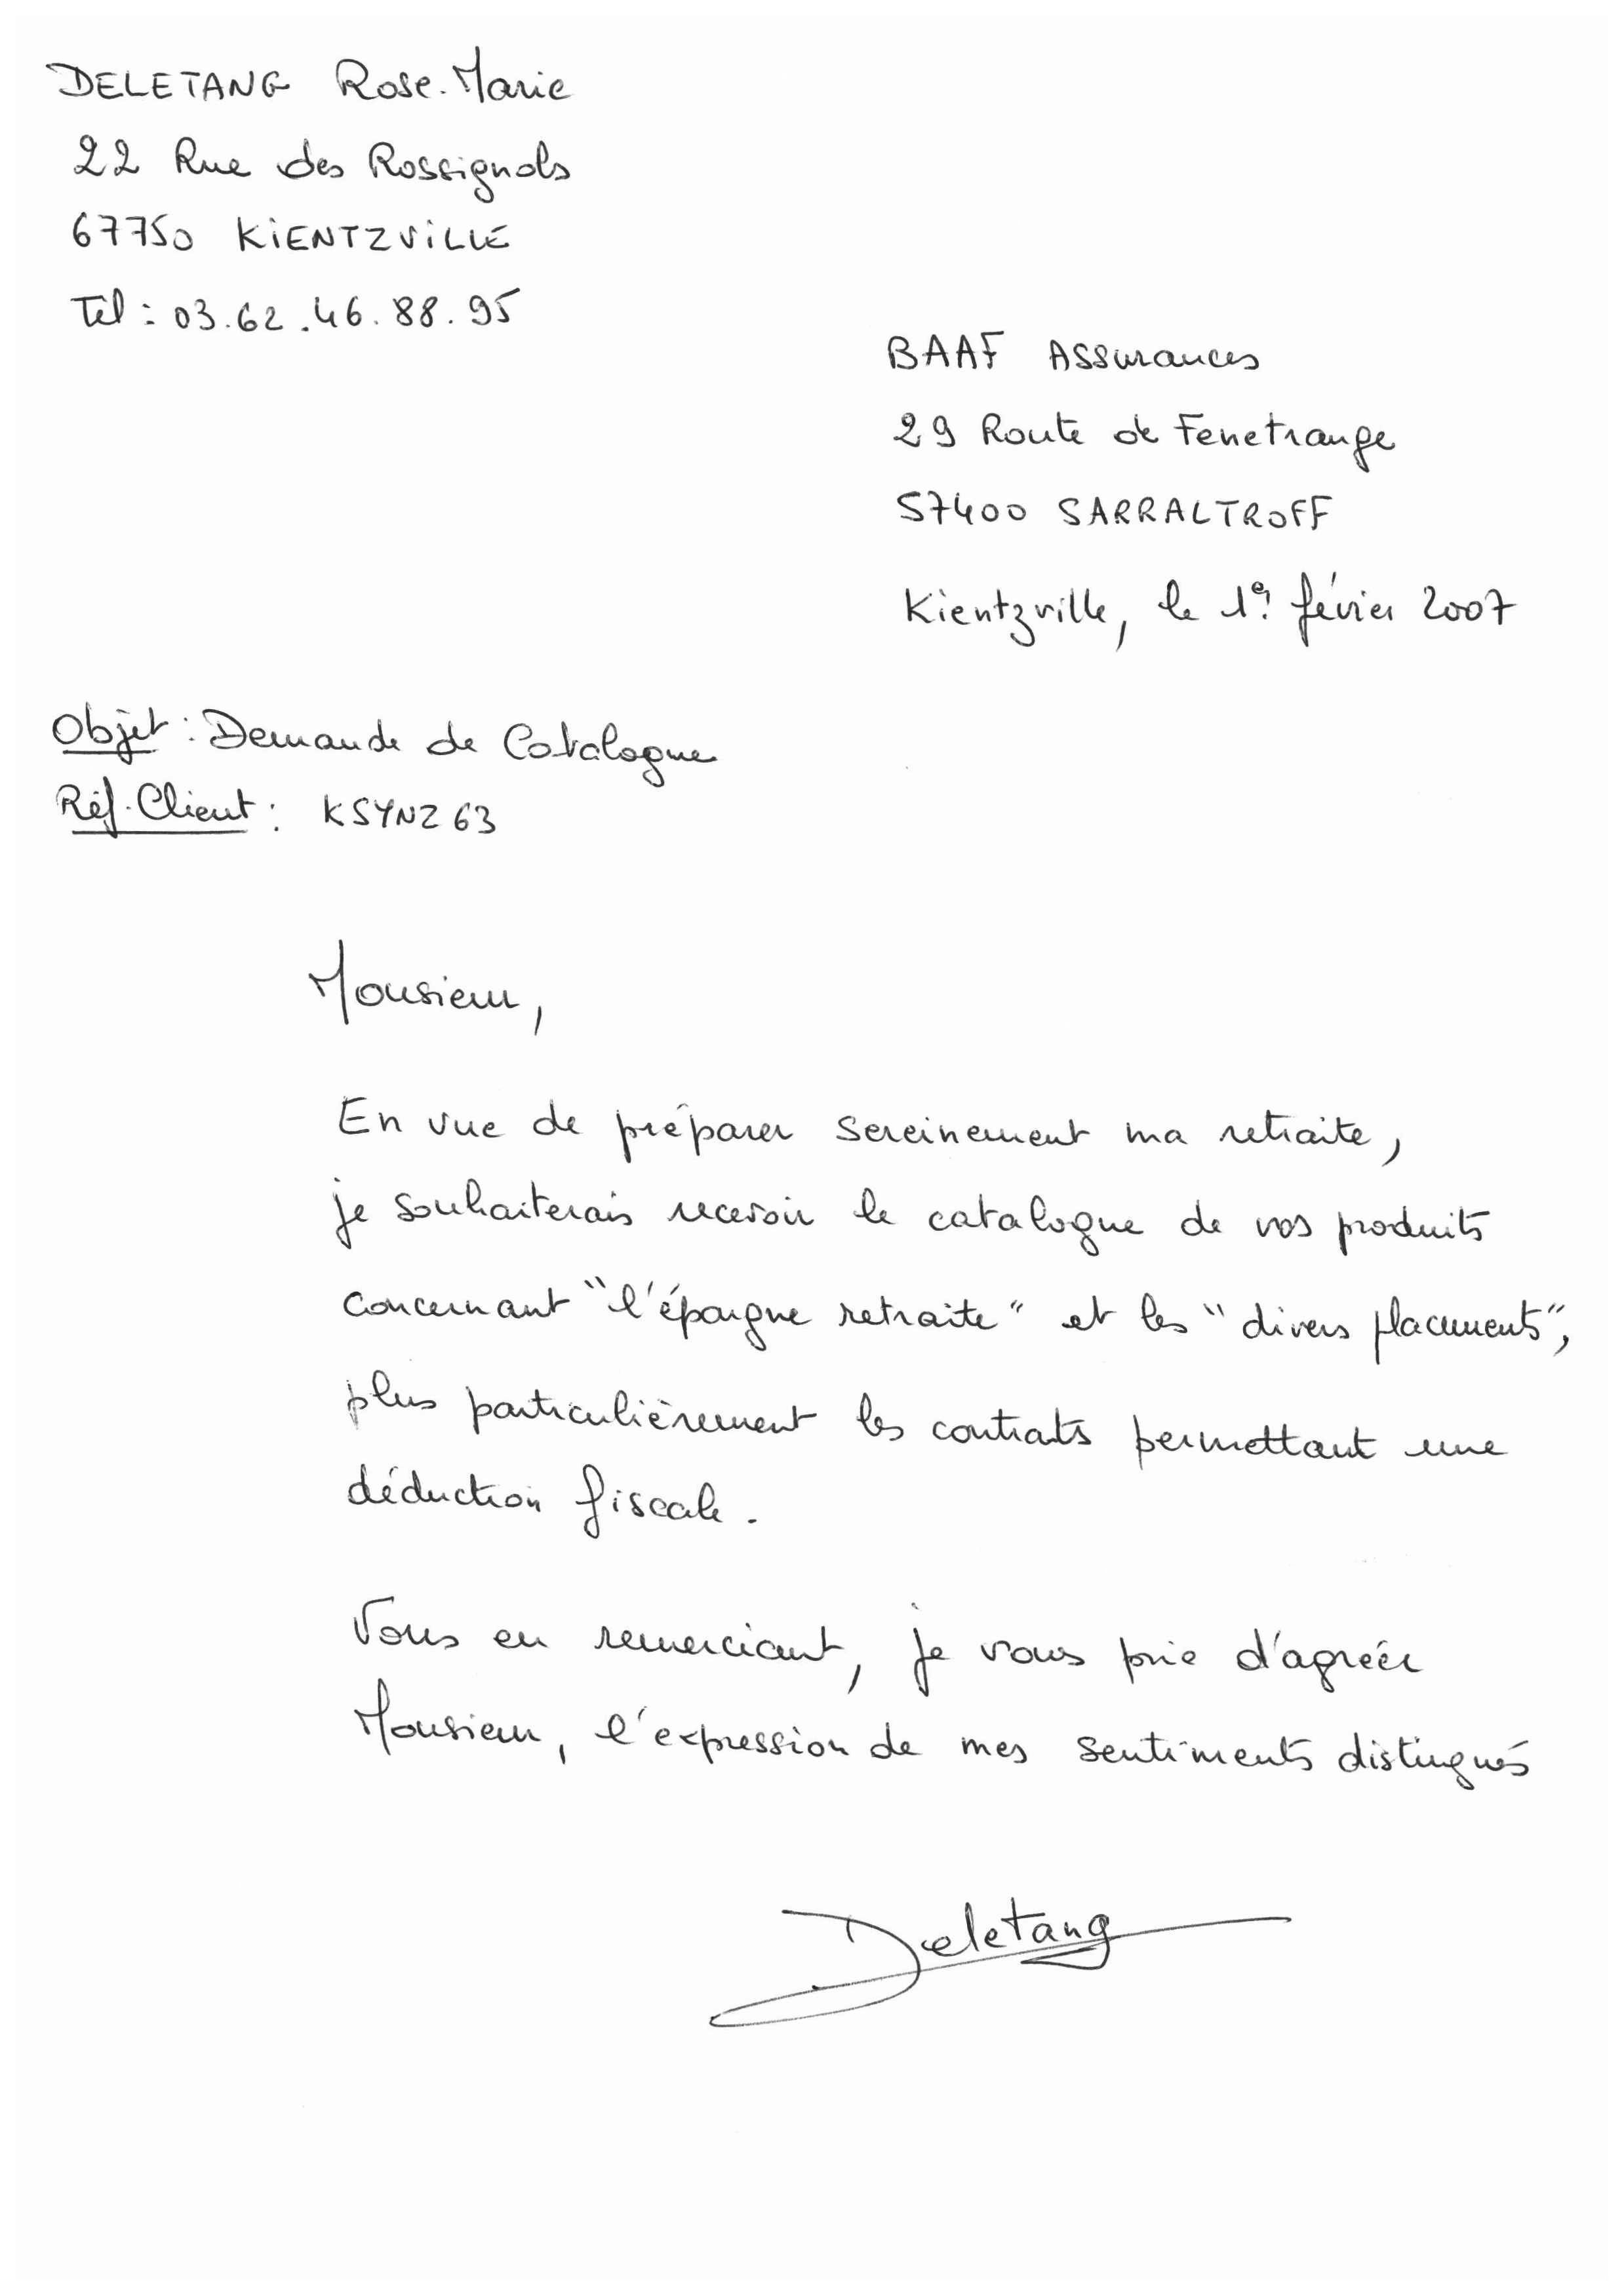 DELETANG Rose-Marie
22 Rue des Rossignols
67750 KiENTZViLLE
Tél : 03.62.46.88.95
BAAF Assurances
29 Route de Fenetrange
57400 SARRALTROFF
Kientzville, le 1er févier 2007
Objet : Demande de Catalogue
Réf. Client : KSYNZ63
Monsieur,
En vue de préparer sereinement ma retraite,
je souhaiterais recevoir le catalogue de vos produits
concernant "l'épargne retraite" et les "divers placements",
plus particulièrement les contrats permettant une
déduction fiscale.
Vous en remerciant, je vous prie d'agréér
Monsieur, l'expression de mes sentiments distingués
Deletang